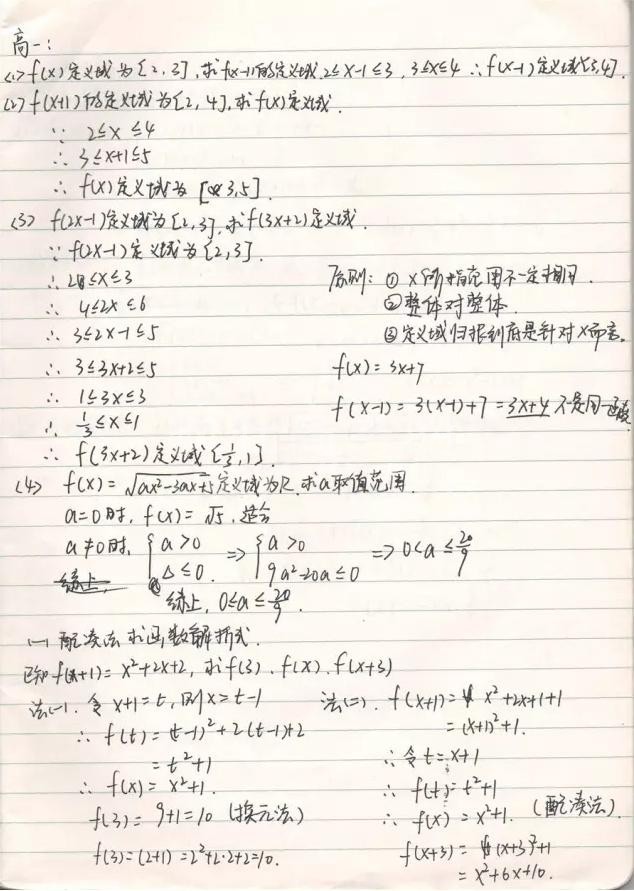 高一:
(1) f(x)定义域为[2,3],求f(x-1)的定义域,2≤x-1≤3,3≤x≤4 ∴f(x-1)定义域[3,4].
(2) f(x+1)的定义域为[2,4],求f(x)定义域.
∵ 2≤x≤4
∴ 3≤x+1≤5
∴ f(x)定义域为[3,5].
(3) f(2x-1)定义域为[2,3],求f(3x+2)定义域.
∵ f(2x-1)定义域为[2,3].
∴ 2≤x≤3
∴ 4≤2x≤6
∴ 3≤2x-1≤5
∴ 3≤3x+2≤5
∴ 1≤3x≤3
∴ 1/3≤x≤1
∴ f(3x+2)定义域[1/3,1].
原则: ① x所指范围不一定相同.
② 整体对整体.
③ 定义域归根到底是针对x而言.
f(x)=3x+7
f(x-1)=3(x-1)+7=3x+4 不是同一函数
(4) f(x)=√(ax²-3ax+5)定义域为R,求a取值范围.
a=0时, f(x)=√5, 适合
a≠0时, { a>0 ⇒ { a>0 ⇒ 0<a≤20/9
Δ≤0. 9a²-20a≤0
综上,
综上, 0≤a≤20/9.
(一) 配凑法求函数解析式.
已知f(x+1)=x²+2x+2, 求f(3), f(x), f(x+3)
法(一). 令x+1=t, 则x=t-1
∴ f(t)=(t-1)²+2(t-1)+2
=t²+1
∴ f(x)=x²+1.
f(3)=9+1=10 (换元法)
f(3)=(2+1)=2²+2·2+2=10.
法(二). f(x+1)=x²+2x+1+1
=(x+1)²+1.
∴ 令t=x+1
∴ f(t)=t²+1
∴ f(x)=x²+1. (配凑法)
f(x+3)=(x+3)²+1
=x²+6x+10.